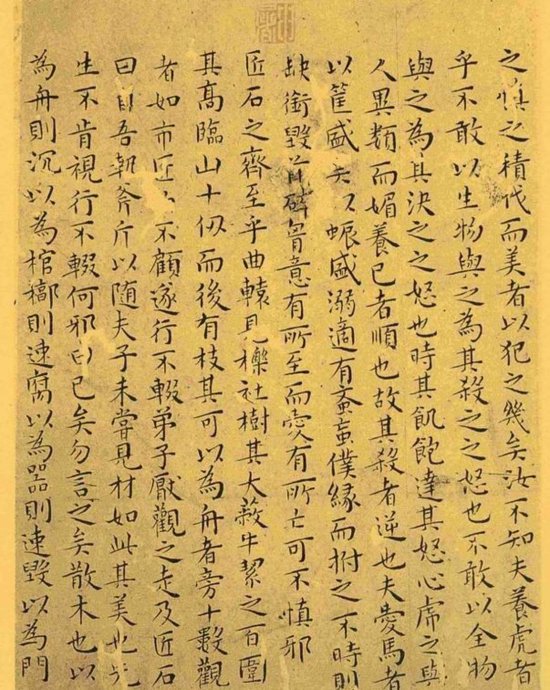 之慎之積代而美者以犯之幾矣汝不知夫養虎者
乎不敢以生物與之為其殺之之怒也不敢以全物
與之為其決之之怒也時其飢飽達其怒心虎之與
人異類而媚養已者順也故其殺者逆也夫愛馬者
以筐盛矢以蜄盛溺適有蚤䖟僕緣而拊之不時則
缺銜毀首碎胷意有所至而愛有所亡可不慎邪
匠石之齊至乎曲轅見櫟社樹其大蔽牛絜之百圍
其高臨山十仞而後有枝其可以為舟者旁十數觀
者如市匠不顧遂行不輟弟子厭觀之走及匠石
曰自吾執斧斤以随夫子未嘗見材如此其美也先
生不肯視行不輟何邪曰已矣勿言之矣散木也以
為舟則沉以為棺槨則速腐以為器則速毀以為門